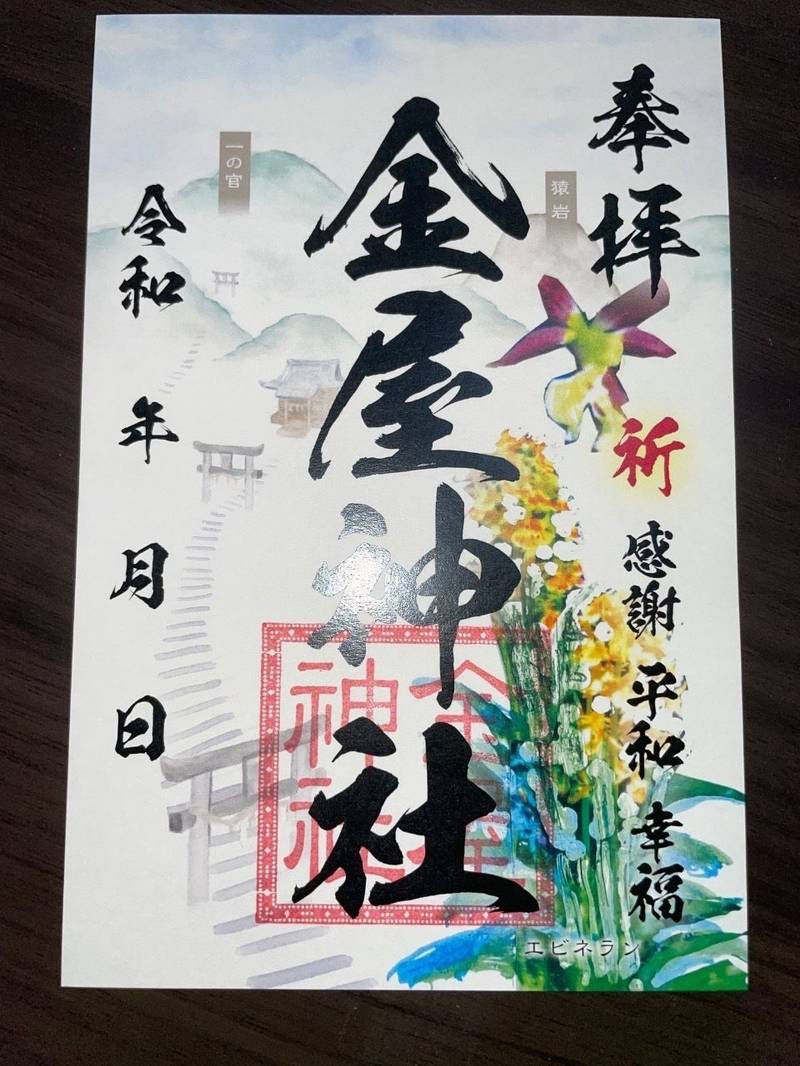 奉拝
祈 感謝 平和 幸福
猿岩
金屋神社
金屋神社
一の官
令和 年 月 日
エビネラン